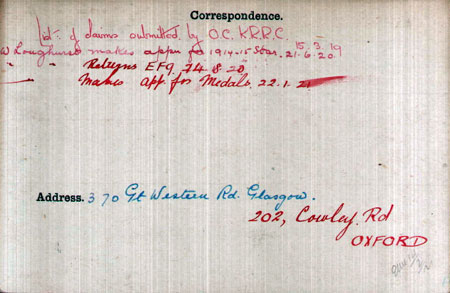 Correspondence.
List of claims submitted by O.C. K.R.R.C. 15.3.19
W Loughurst makes appn for 1914-15 Star. 21.6.20
Returns EF9 24.8.20
Makes app. for Medals. 22.1.21
Address. 370 Gt Western Rd. Glasgow.
202, Cowley Rd
OXFORD